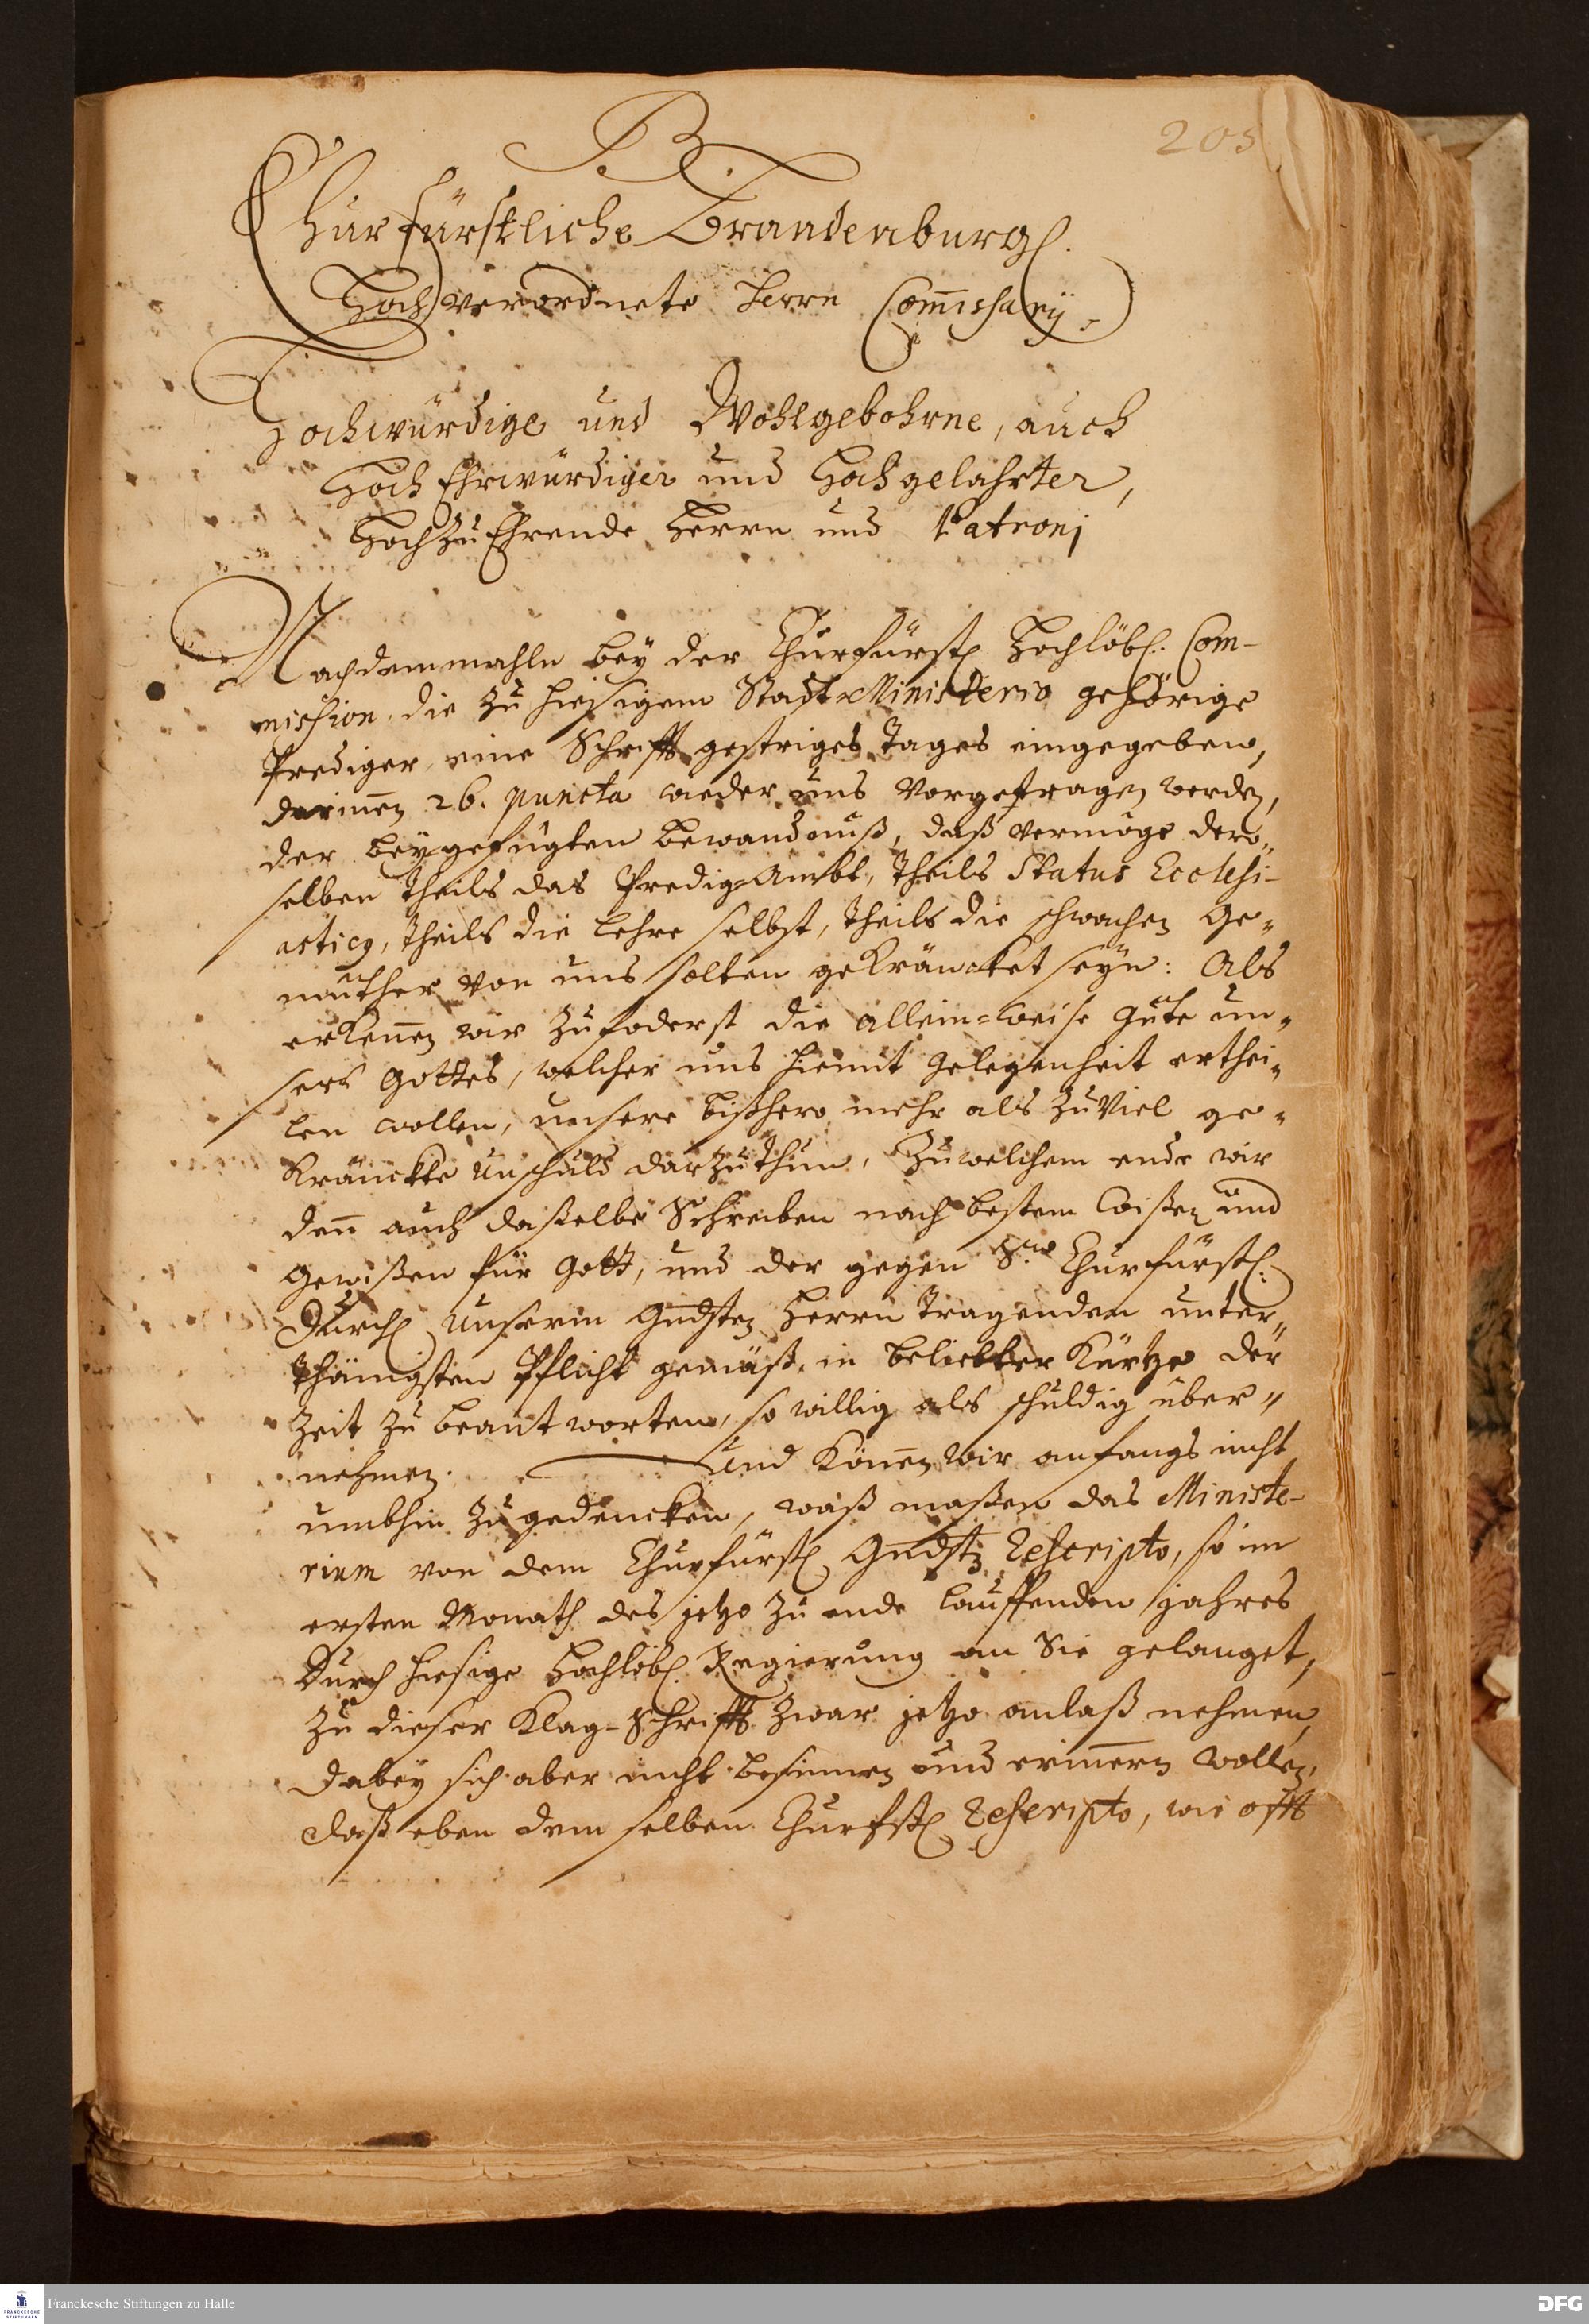 205
B.
Churfürstliche Brandenburgl.
Hochverordnete Herrn Com̃issarij.
Hochwürdige und Wohlgebohrne, auch
Hoch Ehrwürdiger und Hochgelahrter,
HochzuEhrende Herrn und Patronj
Nachdemmahln bey der Churfürstl Hochlöbl. Com-
mission, die zu hiesigem Stadt-Ministerio gehörige
Prediger, eine Schrifft gestriges Tages eingegeben,
darin̄en 26. puncta wieder uns vorgetragen werden,
der beygefügten bewandnuß, daß vermöge der-
selben theils das Predig-Ambt, theils Status Ecclesi-
asticq, theils die Lehre selbst, theils die schwachen Ge-
müther von uns solten gekräncket seyn: Als
erken̄en wir zufoderst die allein-weise Güte un-
sers Gottes, welcher uns hiemit gelegenheit erthei-
len wollen, unsere bißhero mehr als zu viel ge-
kränckte Unschuld darzuthun, zu welchem ende wir
den̄ auch daßelbe Schreiben nach bestem Wißen und
Gewißen für Gott, und der gegen Sr Churfürstl.
Durchl Unserm Gndsten Herrn tragenden unter-
thänigsten Pflicht gemäß, in beliebter Kürtze der
Zeit zu beantworten, so willig als schuldig über-
nehmen. Und kön̄en wir anfangs nicht
umbhin zu gedencken, waß maßen das Ministe-
rium von dem Churfürstl Gndstn Rescripto, so im
ersten Monath des jetzo zu ende lauffenden jahres
Durch hiesige Hochlöbl. Regierung an Sie gelanget,
zu dieser Klag-Schrifft zwar jetzo anlaß nehmen,
Dabey sich aber nicht besinnen und erinnern wollen,
daß eben dem selben Churfstl Rescripto, wie offt
Franckesche Stiftungen zu Halle
FRANCKESCHE
STIFTUNGEN
DFG